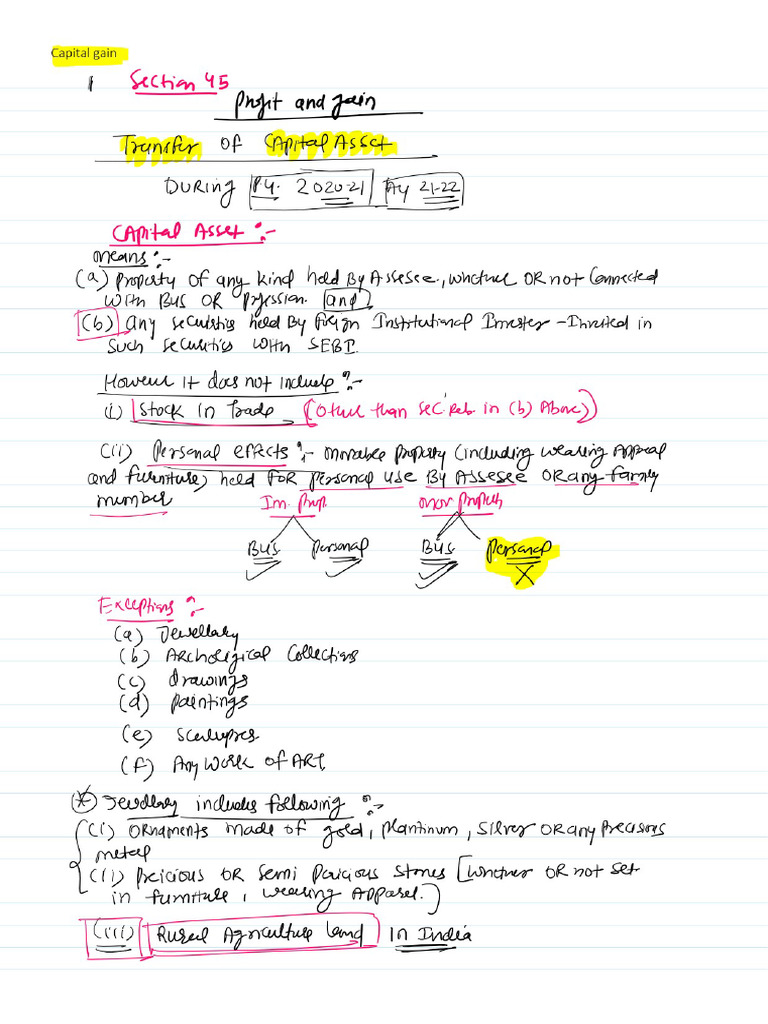 Capital gain
1 Section 45
Profit and gain
Transfer of Capital Asset
During P.Y. 2020-21 AY 21-22
Capital Asset :-
Means :-
(a) Property of any kind held By Assesee, whether OR not Connected
with Bus OR Profession. and
(b) Any securities held By Foreign Institutional Invester - Invested in
such securities with SEBI.
However it does not include :-
(i) Stock in Trade (other than sec. Ref. in (b) Above)
(ii) Personal effects :- movable property (including wearing Apparel
and furniture) held FOR personal use By Assesee OR any family
member
Im. Prop. Mov Property
Bus Personal Bus Personal
Exceptions :-
(a) Jewellary
(b) Archological Collections
(c) drawings
(d) paintings
(e) Sculupres
(f) Any work of ART,
Jewellary includes following :-
(i) ORNAMENTS made of gold, plantinum, silver OR any Precious
metal
(ii) Precicious OR Semi Percious stones [whether OR not set
in furniture, wearing Apparel.]
(iii) Rural Agriculture land in India